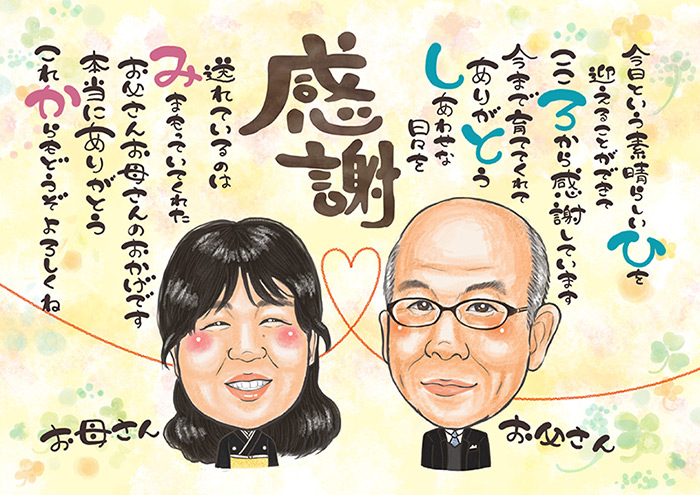 今日という素晴らしいひを
迎えることができて
こころから感謝しています
今まで育ててくれて
ありがとう
しあわせな
日々を
感謝
送れているのは
みまもっていてくれた
お父さんお母さんのおかげです
本当にありがとう
これからもどうぞよろしくね
お父さん
お母さん